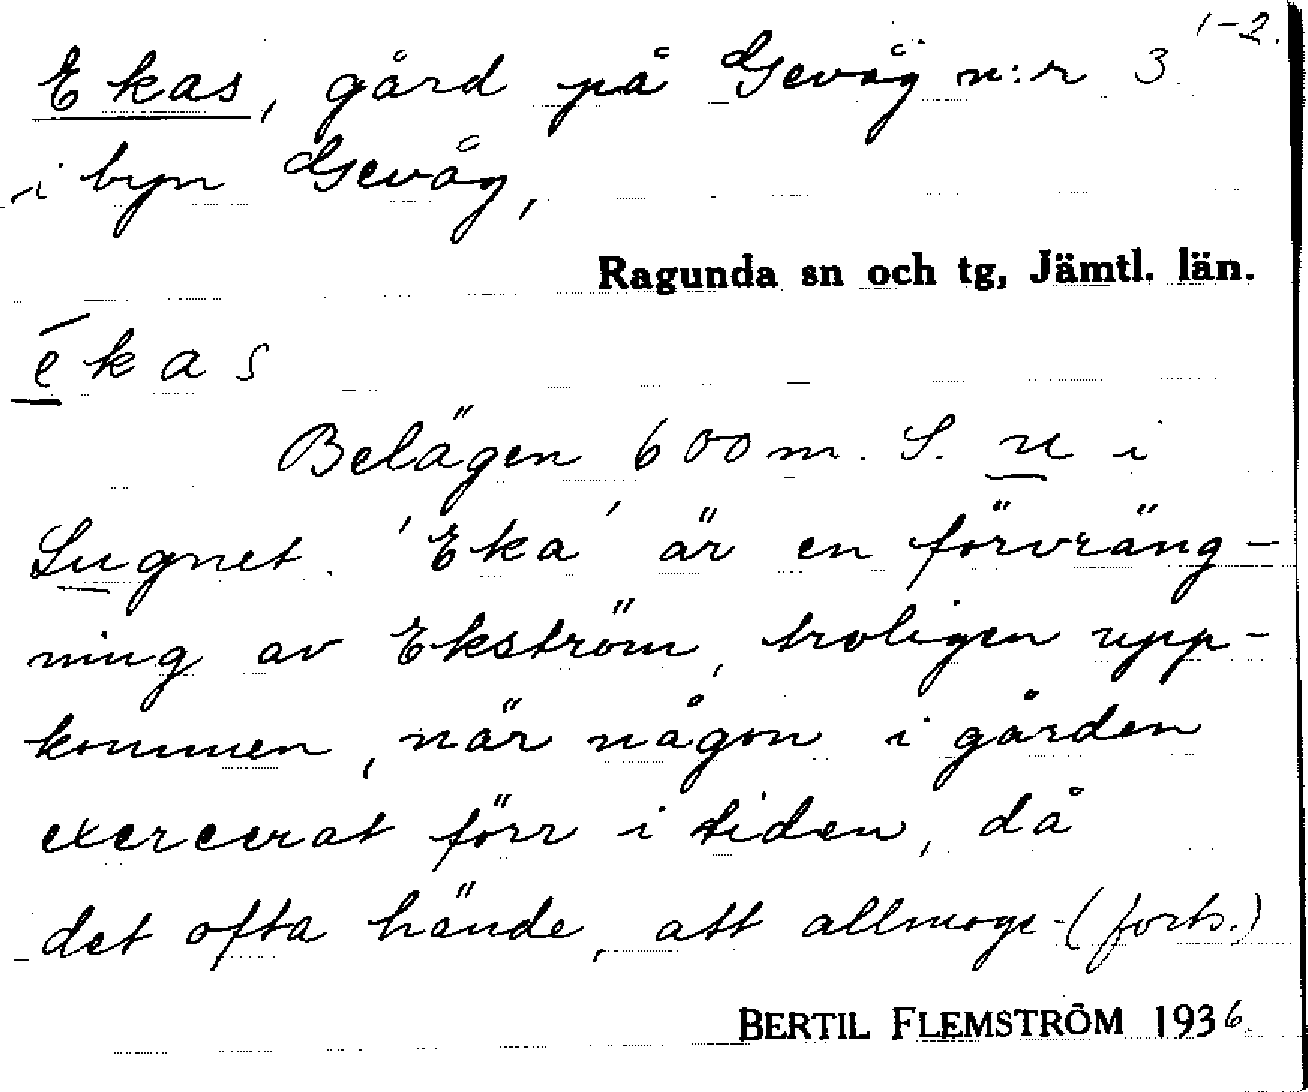 1-2.
Ekas, gård på Gevåg n:r 3
i byn Gevåg,
Ragunda sn och tg, Jämtl. län.
ēkas
Belägen 600 m. S. u i
Sugnet. 'Eka' är en förvräng-
ning av Ekström, troligen upp-
kommen, när någon i gården
exercerat förr i tiden, då
det ofta hände, att allmoge- (forts.)
BERTIL FLEMSTRÖM 1936